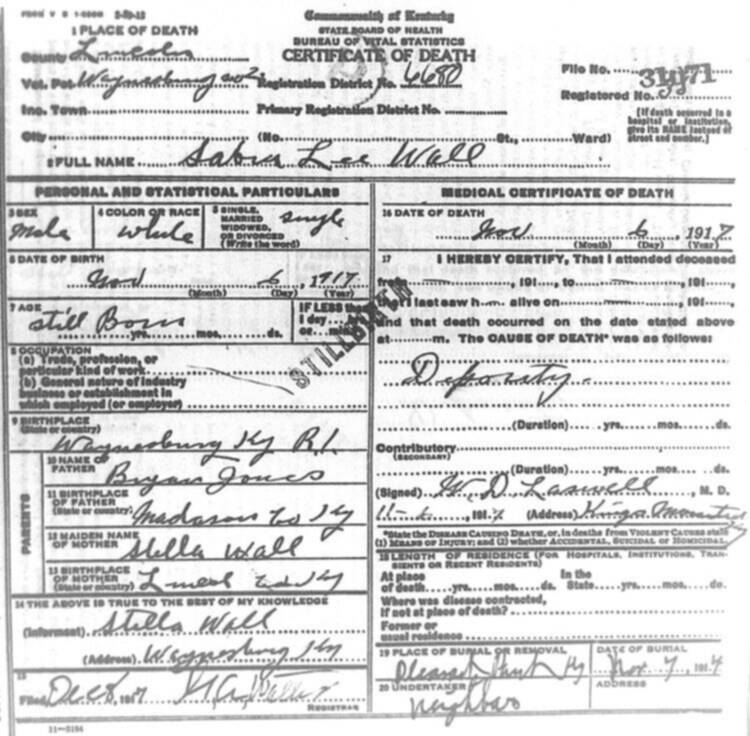 FORM V S 1-500M
Commonwealth of Kentucky
STATE BOARD OF HEALTH
BUREAU OF VITAL STATISTICS
CERTIFICATE OF DEATH
1 PLACE OF DEATH
County Lincoln
Vot. Pct Waynesburg No 2
Inc. Town
City
Registration District No. 6680
Primary Registration District No.
(No. St., Ward)
File No. 31171
Registered No.
[If death occurred in a
hospital or institution,
give its NAME instead of
street and number.]
2 FULL NAME Lee Wall
PERSONAL AND STATISTICAL PARTICULARS
3 SEX
Male
4 COLOR OR RACE
White
5 SINGLE,
MARRIED
WIDOWED,
OR DIVORCED
(Write the word)
single
6 DATE OF BIRTH
Nov 6, 1917
(Month) (Day) (Year)
7 AGE
Still Born
yrs. mos. ds.
IF LESS than
1 day
or
STILLBIRTH
8 OCCUPATION
(a) Trade, profession, or
particular kind of work
(b) General nature of industry
business or establishment in
which employed (or employer)
9 BIRTHPLACE
(State or country) Waynesburg Ky R.1.
PARENTS
10 NAME OF
FATHER Bryan Jones
11 BIRTHPLACE
OF FATHER
(State or country) Madason Co Ky
12 MAIDEN NAME
OF MOTHER Stella Wall
13 BIRTHPLACE
OF MOTHER
(State or country) Ky
14 THE ABOVE IS TRUE TO THE BEST OF MY KNOWLEDGE
(Informant) Stella Wall
(Address) Waynesburg Ky
15
Filed Dec 8, 1917
REGISTRAR
11—3184
MEDICAL CERTIFICATE OF DEATH
16 DATE OF DEATH
Nov 6 1917
(Month) (Day) (Year)
17 I HEREBY CERTIFY, That I attended deceased
from , 191 , to , 191 ,
that I last saw h alive on , 191 ,
and that death occurred on the date stated above
at m. The CAUSE OF DEATH* was as follows:
(Duration) yrs. mos. ds.
Contributory
(SECONDARY)
(Duration) yrs. mos. ds.
(Signed) W. D. Laswell, M. D.
191 (Address) Kings Mountain
*State the DISEASE CAUSING DEATH, or, in deaths from VIOLENT CAUSES state
(1) MEANS OF INJURY; and (2) whether ACCIDENTAL, SUICIDAL OR HOMICIDAL.
18 LENGTH OF RESIDENCE (FOR HOSPITALS, INSTITUTIONS, TRAN-
SIENTS OR RECENT RESIDENTS)
At place In the
of death yrs. mos. ds. State yrs. mos. ds.
Where was disease contracted,
if not at place of death?
Former or
usual residence
19 PLACE OF BURIAL OR REMOVAL
Pleasant Ky
DATE OF BURIAL
Nov 7, 191
20 UNDERTAKER
neighbors
ADDRESS